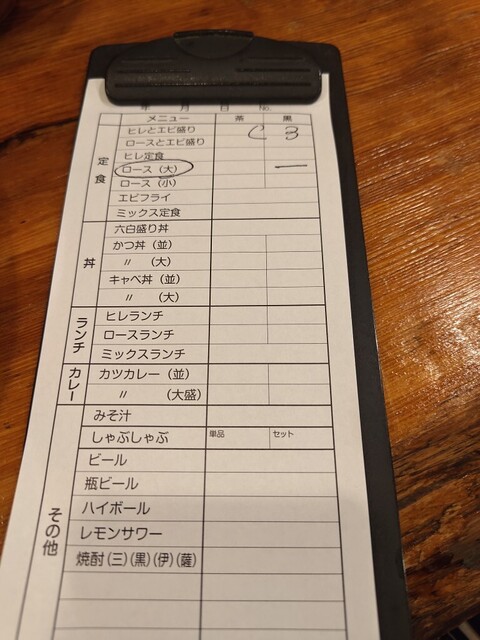 年 月 日 No.
メニュー 茶 黒
定食
ヒレとエビ盛り
ロースとエビ盛り
ヒレ定食
ロース（大） 一
ロース（小）
エビフライ
ミックス定食
丼
六白盛り丼
かつ丼（並）
〃 （大）
キャベ丼（並）
〃 （大）
ランチ
ヒレランチ
ロースランチ
ミックスランチ
カレー
カツカレー（並）
〃 （大盛）
その他
みそ汁
しゃぶしゃぶ 単品 セット
ビール
瓶ビール
ハイボール
レモンサワー
焼酎(三)(黒)(伊)(薩)